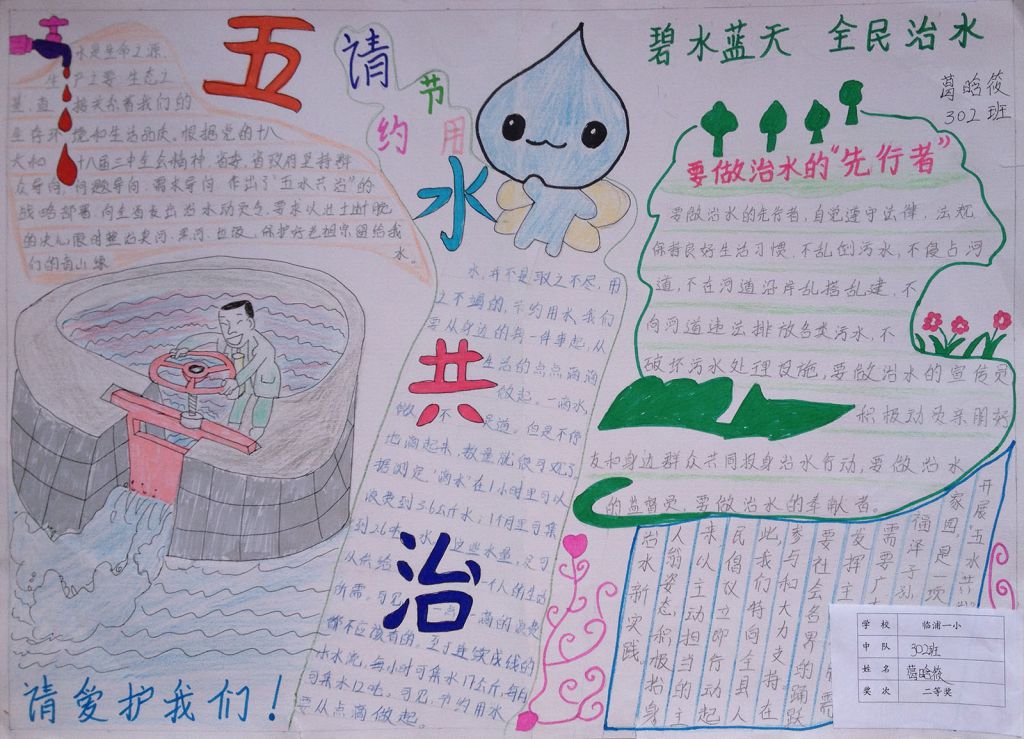 五水共治
请节约用水
碧水蓝天 全民治水
葛晗筱
302班
水是生命之源、
生产之要、生态之
基,直接关系着我们的
生存环境和生活品质。根据党的十八
大和十八届三中全会精神,省委、省政府坚持群
众导向、问题导向、需求导向,作出了“五水共治”的
战略部署,向全省发出治水动员令,要求以壮士断腕
的决心限时整治黑河、
保护好老祖宗留给我
们的青山绿水。
水,并不是取之不尽,用
之不竭的,节约用水,我们
要从身边的每一件事起,从
生活的点点滴滴
做起。一滴水,
微不足道。但是不停
地滴起来,数量就很可观了。
据测定,“滴水”在1小时里可以
浪费到3.6公斤水;1个月里可集
到2.6吨水。这些水量,足可
以供给一个人的生活
所需。可见,一点一滴的浪费
都不应该有的。至于连续成线的
小水流,每小时可集水17公斤,每月
可集水12吨。可见,节约用水
要从点滴做起。
请爱护我们!
要做治水的“先行者”
要做治水的先行者,自觉遵守法律、法规,
保持良好生活习惯,不乱倒污水,不侵占河
道,不在河道沿岸乱搭乱建,不
向河道违法排放各类污水,不
破坏污水处理设施,要做治水的宣传员
积极动员亲朋好
友和身边群众共同投身治水行动,要做治水
的监督员,要做治水的奉献者。
开展“五水共
家园,是一项
福泽子孙
需要广
发挥主
要社会各界的踊跃
参与和大力支持。在
此,我们特向全县人
民倡仪立即行动起
来,以主动担当的主
人翁姿态积极投身
治水新实践
学校 临浦一小
中队 302班
姓名 葛晗筱
奖次 二等奖